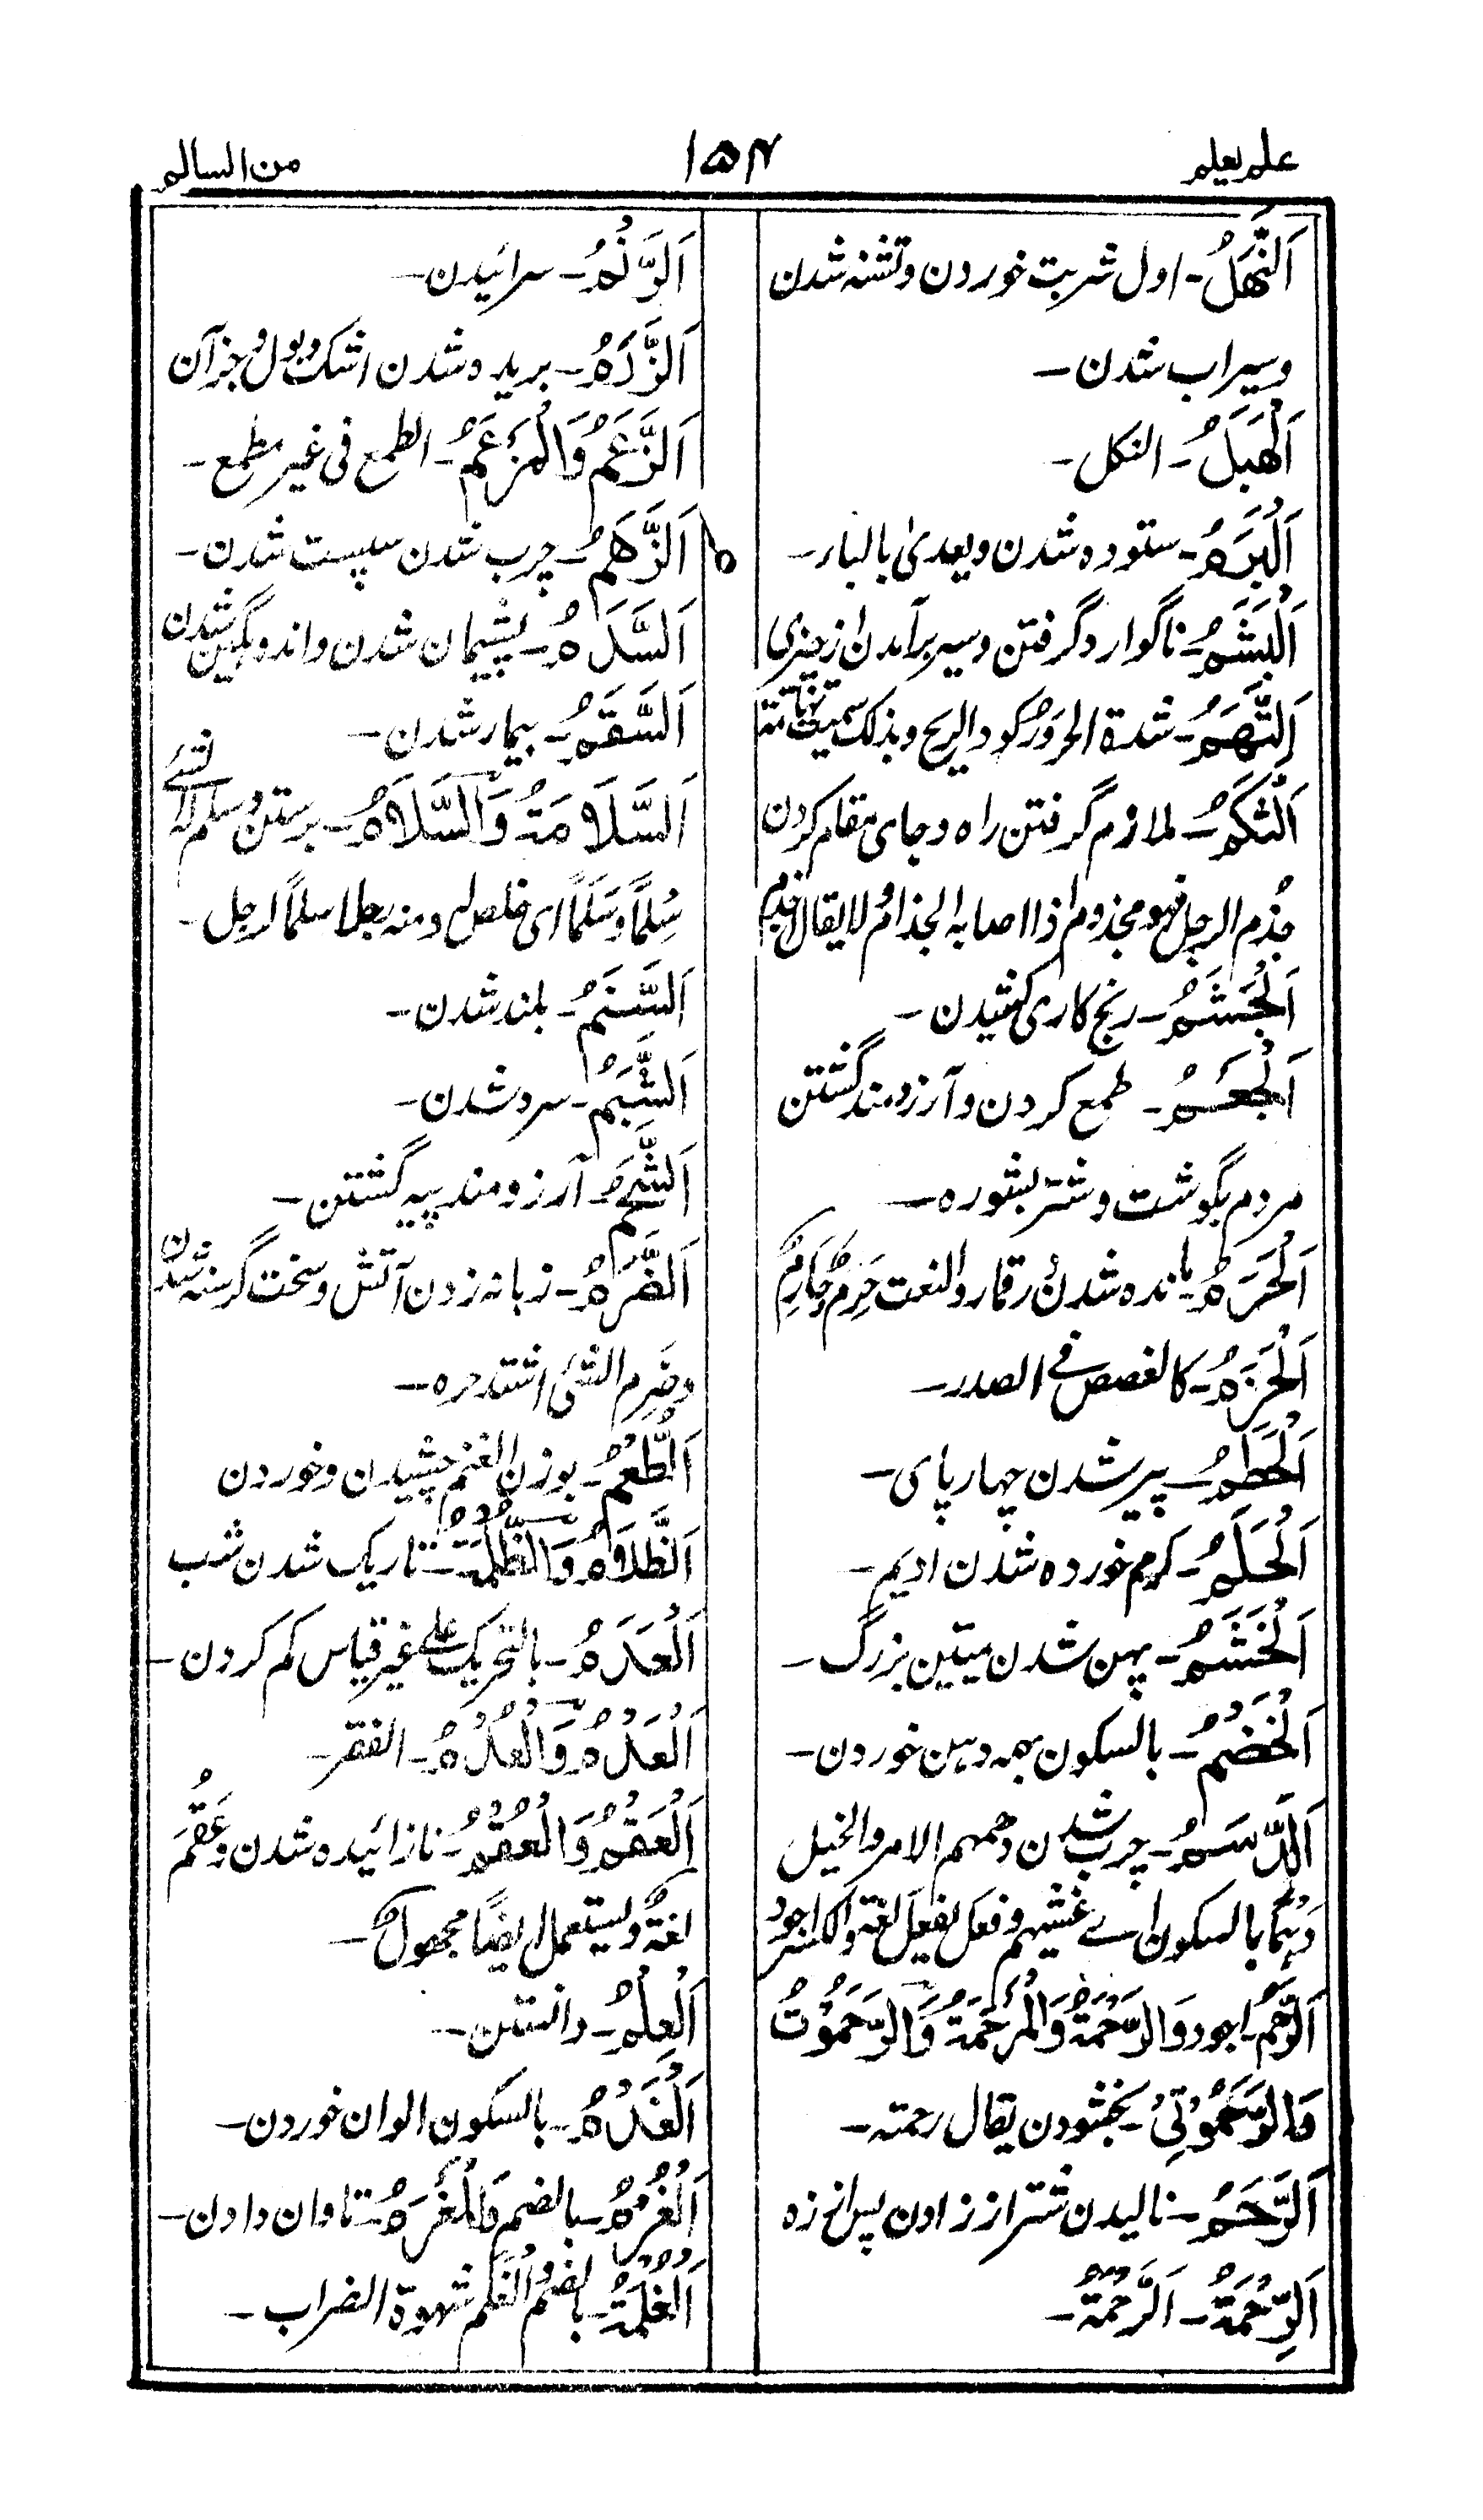 علم یعلم
۱۵۴
من السالم
اَلنَّهَلُ - اول شربت خوردن و تشنه شدن
و سیراب شدن -
اَلْهَبَلُ - الثکل -
اَلْبَرَمُ - ستوده شدن و یعدی بالباء -
اَلْبَشَمُ - ناگوارد گرفتن و سیر برآمدن از چیزی
اَلتَّهَمُ - شدة الحر ورکود الریح و بذلک سمیت تهامة
اَلثَّكَمُ - ملازم گرفتن راه و جای مقام کردن
جذم الرجل فهو مجذوم اذا اصابه الجذام ولا یقال اجذم
اَلْجَشَمُ - رنج کاری کشیدن -
اَلْجَعَمُ - طمع کردن و آرزومند گشتن
مردم بگوشت و شتر بشوره -
اَلْحَرَمُ - مانده شدن در قمار والنعت حَرِمٌ وحَارِمٌ
اَلْحَزَمُ - کالغصص فی الصدر -
اَلْحَطَمُ - پیر شدن چهارپای -
اَلْحَلَمُ - کرم خورده شدن ادیم -
اَلْخَشَمُ - پهن شدن بینی بزرگ -
اَلْخَضْمُ - بالسکون بهمه دهن خوردن -
اَلدَّسَمُ - چرب شدن ودهمهم الامر والخیل
دَهْمًا بالسکون ای غشیهم وفعَل یفعَل لغة والکسر اجود
اَلرُّحْمُ - اجود وَالرَّحْمَةُ وَالْمَرْحَمَةُ وَالرَّحَمُوْتُ
وَالرَّحَمُوْتِیْ - بخشودن یقال رحمته -
اَلرَّحَمُ - نالیدن شتر از زادن پس از زه
اَلرِّحْمَةُ - اَلرَّحْمَةُ -
اَلرَّنَمُ - سرائیدن -
اَلزَّرَمُ - بریده شدن اشک و بول و جز آن
اَلزَّعَمُ وَالْمَزْعَمُ - الطمع فی غیر مطمع -
اَلزَّهَمُ - چرب شدن پست شدن -
اَلسَّدَمُ - پشیمان شدن و اندوهگین شدن
اَلسَّقَمُ - بیمار شدن -
اَلسَّلَامَةُ وَالسَّلَامُ - برستن وسلم له الشیٔ
سِلْمًا وَسَلَمًا ای خلص له ومنه رجلا سلما لرجل -
اَلسَّنَمُ - بلند شدن -
اَلشَّبَمُ - سرد شدن -
اَلشَّحَمُ - آرزومند پیه گشتن -
اَلضَّرَمُ - زبانه زدن آتش و سخت گرسنه شدن
وضرم الشیٔ اشتد حره -
اَلطُّعْمُ - بوزن الغنم چشیدن و خوردن
اَلظَّلَامُ وَالظُّلْمَةُ - تاریک شدن شب
اَلْعَدَمُ - بالتحریک علی غیر قیاس کم کردن -
اَلْعَدْمُ وَالْعُدْمُ - الفقر -
اَلْعَقْمُ وَالْعُقْمُ - نازائیده شدن وعَقُمَ
لغة ویستعمل ایضًا مجهولاً -
اَلْعِلْمُ - دانستن -
اَلْغَذْمُ - بالسکون الوان خوردن -
اَلْغُرْمُ - بالضم وَالْمَغْرَمُ - تاوان دادن -
اَلْغُلْمَةُ - بالضم والغلم شهوة الضراب -